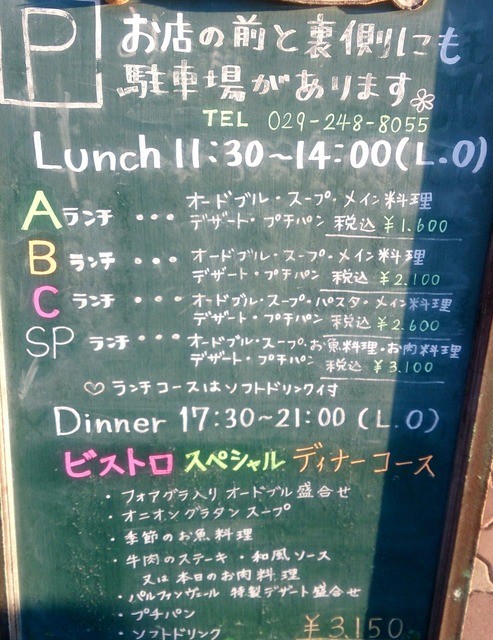 P
お店の前と裏側にも
駐車場があります。
TEL 029-248-8055
Lunch 11:30~14:00(L.O)
Aランチ ・・・ オードブル・スープ・メイン料理
デザート・プチパン 税込 ¥1.600
Bランチ ・・・ オードブル・スープ・メイン料理
デザート・プチパン 税込 ¥2.100
Cランチ ・・・ オードブル・スープ・パスタ・メイン料理
デザート・プチパン 税込 ¥2.600
SPランチ ・・・ オードブル・スープ・お魚料理・お肉料理
デザート・プチパン 税込 ¥3.100
♡ランチコースはソフトドリンク付
Dinner 17:30~21:00(L.O)
ビストロ スペシャル ディナーコース
・フォアグラ入りオードブル盛合せ
・オニオングラタンスープ
・季節のお魚料理
・牛肉のステーキ・和風ソース
又は本日のお肉料理
・パルファンヴェール特製デザート盛合せ
・プチパン
・ソフトドリンク ¥3150